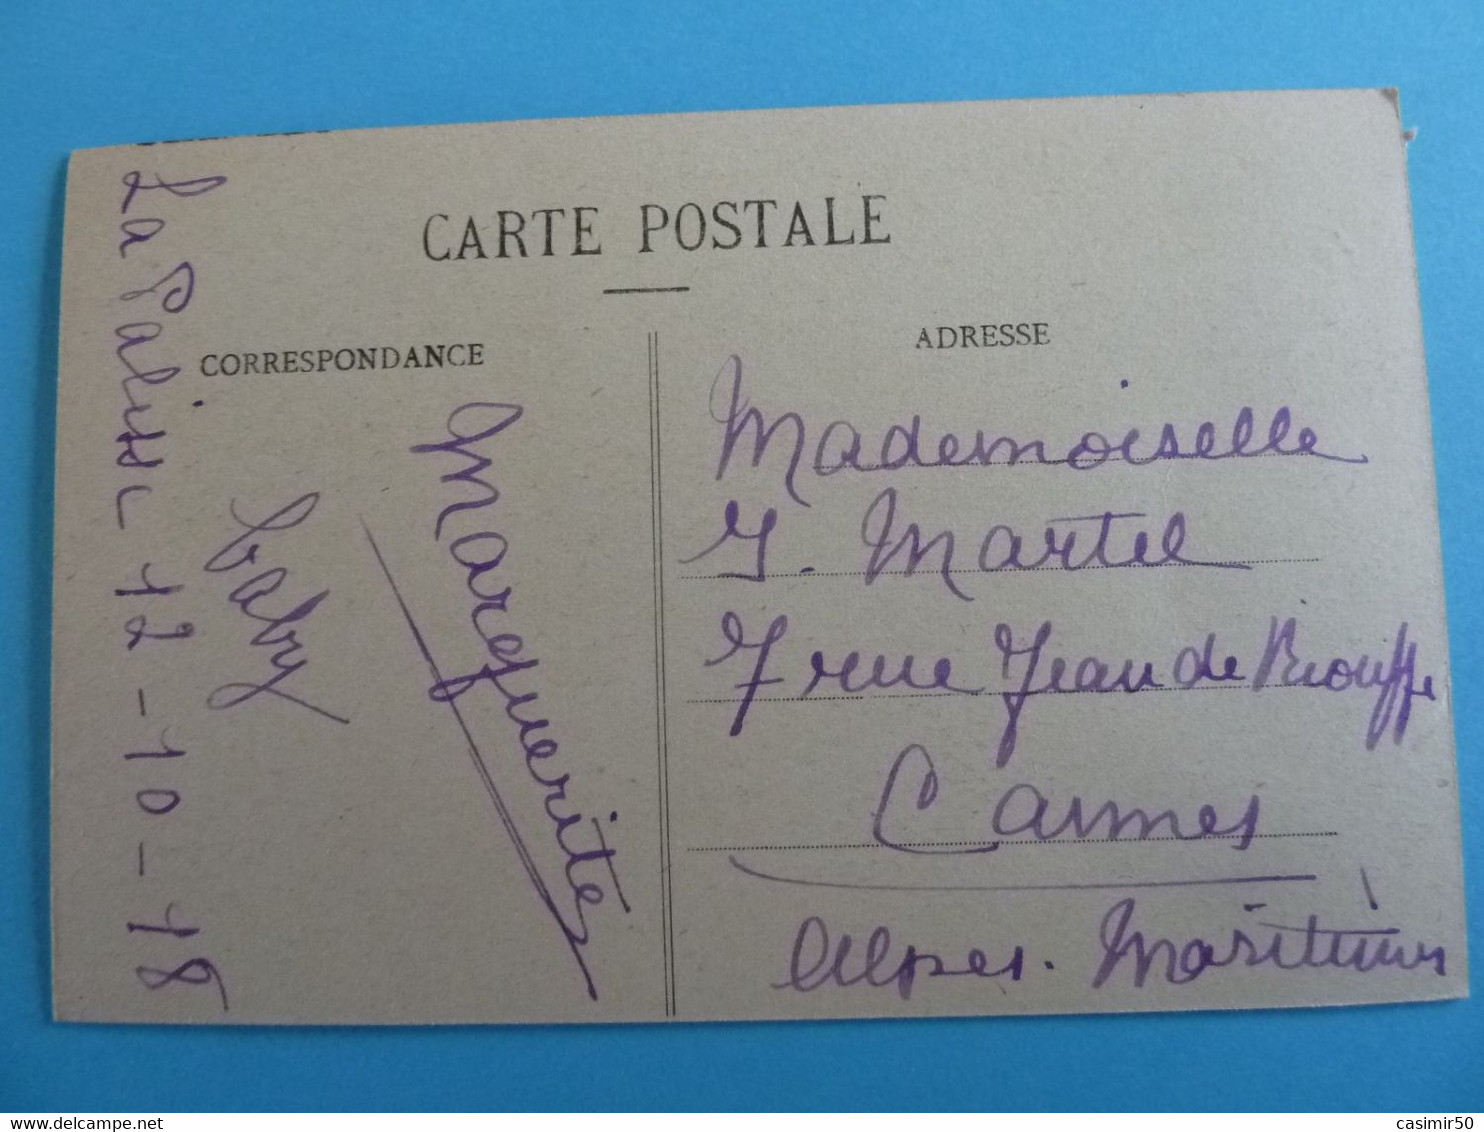 CARTE POSTALE
CORRESPONDANCE
La Palisse 12-10-18
Gaby
Marguerite
ADRESSE
Mademoiselle
Y. Martel
7 rue Jean de Riouffe
Cannes
Alpes. Maritimes
casimir50